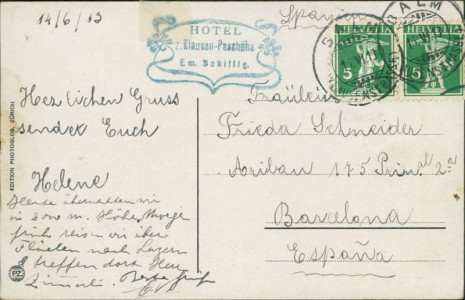 14/6/13
HOTEL
z. Klausen-Passhöhe
Em. Schillig.
Spanien
HELVETIA
5
5
EDITION PHOTOGLOB, ZÜRICH
Herzlichen Gruss
sendet Euch
Helene
Heute übernachten wir
in 2000 m. Höhe. Morgen
früh reisen wir über
Flüelen nach Luzern
& treffen dort Herr
Fräulein
Frieda Schneider
Aribau 175 Prinpal 2a
Barcelona
España
PZ